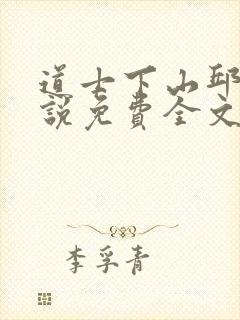 道士下山邱
說免費全文
李孚青